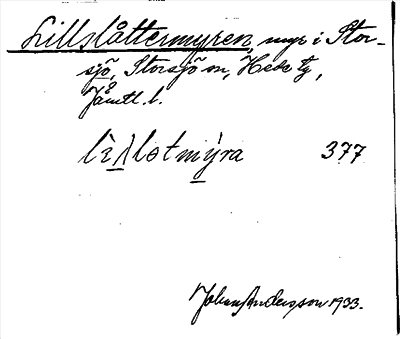 Lillslåttermyren, myr i Stor-
sjö, Storsjö sn, Hede tg,
Jämtl. l.
377
Johan Andersson 1933.